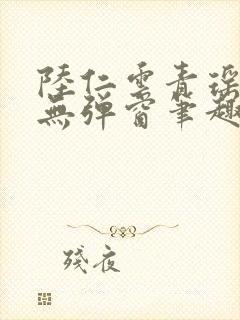 陸仁雲青瑤
無彈窗筆趣
殘夜